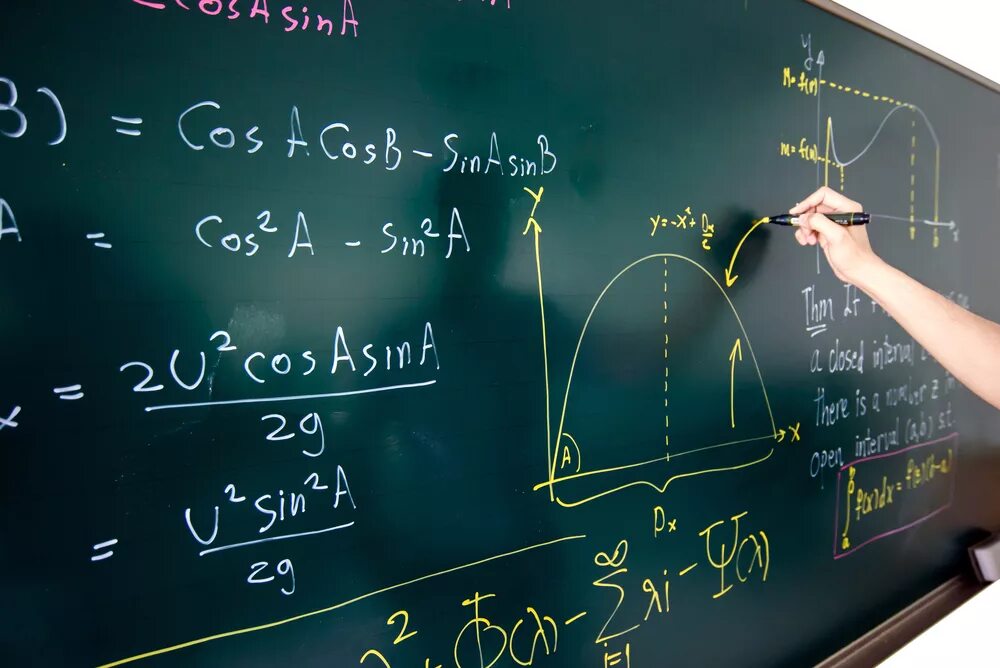 cosAsinA
B) = CosACosB - SinAsinB
A = Cos²A - Sin²A
x = 2U²cosAsinA / 2g
= U²sin²A / 2g
Y
y = -x² + Dx/2
A)
X
Dx
² + Φ(λ) - ∑ i=1 ∞ λi - Ψ(λ)
y
M = f(n)
m = f(m)
b
x
Thm If
a closed interval
there is a number z in
open interval (a,b) s.t.
∫ₐᵇ f(x)dx = f(z)(b-a)